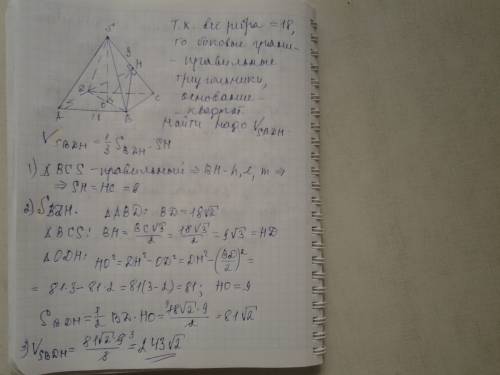 Т.к. все ребра = 18,
то боковые грани -
- правильные
треугольники,
основание -
квадрат.
Найти надо V_SBDH.
S
9
H
D
C
O
A
18
B
V_SBDH = 1/3 S_BDH · SH
1) ΔBCS - правильный ⇒ BH - h, l, m ⇒
⇒ SH = HC = 9
2) S_BDH. ΔABD: BD = 18√2
ΔBCS: BH = BC√3/2 = 18√3/2 = 9√3 = HD
ΔODH: HO² = DH² - OD² = DH² - (BD/2)² =
= 81·3 - 81·2 = 81(3-2) = 81; HO = 9
S_BDH = 1/2 BD · HO = 18√2·9/2 = 81√2
3) V_SBDH = 81√2·9/3 = 243√2